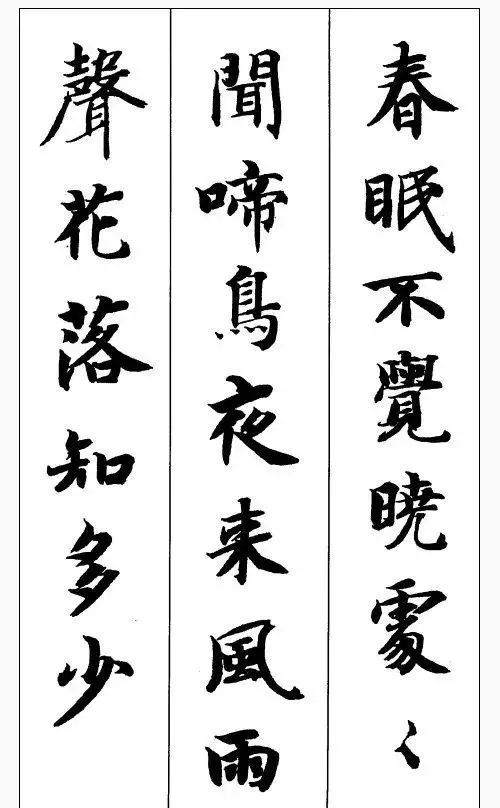 春眠不覺暁䖏〻
聞啼鳥夜来風雨
聲花落知多少